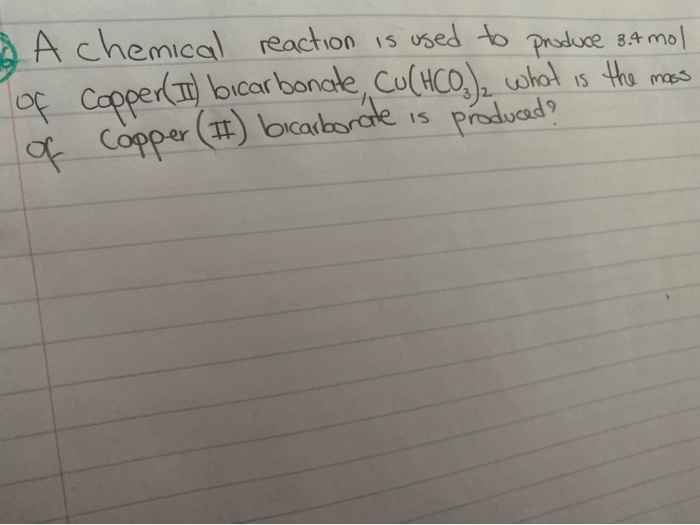 A chemical reaction is used to produce 3.4 mol
of Copper(II) bicarbonate, Cu(HCO₃)₂ what is the mass
of Copper (II) bicarbonate is produced?